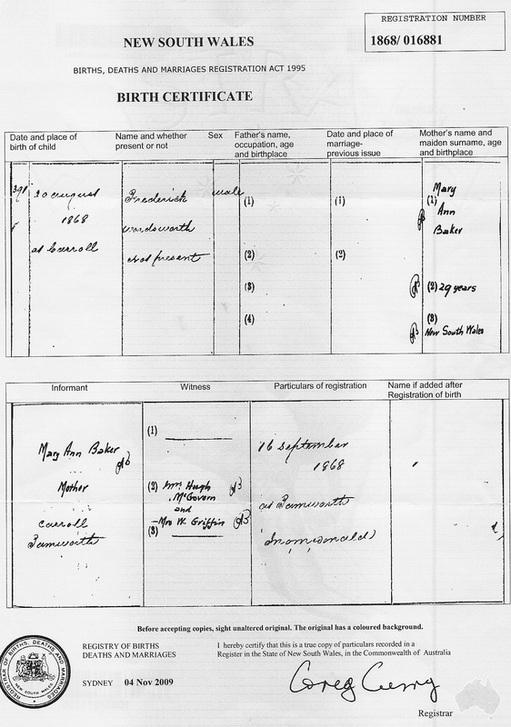 REGISTRATION NUMBER
1868/ 016881
NEW SOUTH WALES
BIRTHS, DEATHS AND MARRIAGES REGISTRATION ACT 1995
BIRTH CERTIFICATE
Date and place of birth of child
Name and whether present or not
Sex
Father's name, occupation, age and birthplace
Date and place of marriage- previous issue
Mother's name and maiden surname, age and birthplace
20 August
1868
at Carroll
Frederick
Wordsworth
Not present
male
(1)
(2)
(3)
(4)
(1)
(2)
Mary
(1) Ann
Baker
(2) 29 years
(3)
New South Wales
Informant
Witness
Particulars of registration
Name if added after Registration of birth
Mary Ann Baker
Mother
Carroll
Tamworth
(1)
(2) Mrs Hugh
McGovern
and
Mrs W. Griffin
(3)
16 September
1868
at Tamworth
Before accepting copies, sight unaltered original. The original has a coloured background.
REGISTRAR OF BIRTHS, DEATHS AND MARRIAGES
NEW SOUTH WALES
REGISTRY OF BIRTHS
DEATHS AND MARRIAGES
SYDNEY 04 Nov 2009
I hereby certify that this is a true copy of particulars recorded in a
Register in the State of New South Wales, in the Commonwealth of Australia
Greg Curry
Registrar